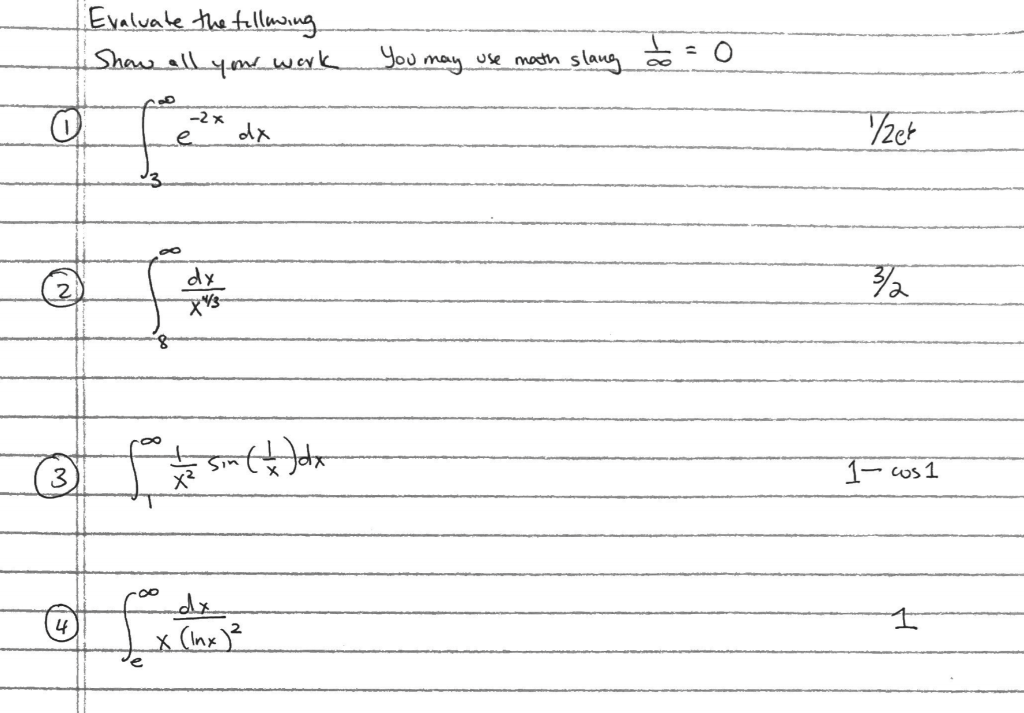 Evaluate the following
Show all your work You may use math slang 1/∞ = 0
① ∫₃^∞ e^(-2x) dx 1/2e⁶
② ∫₈^∞ dx/x^(4/3) 3/2
③ ∫₁^∞ 1/x² sin(1/x)dx 1 - cos1
④ ∫ₑ^∞ dx/x(lnx)² 1